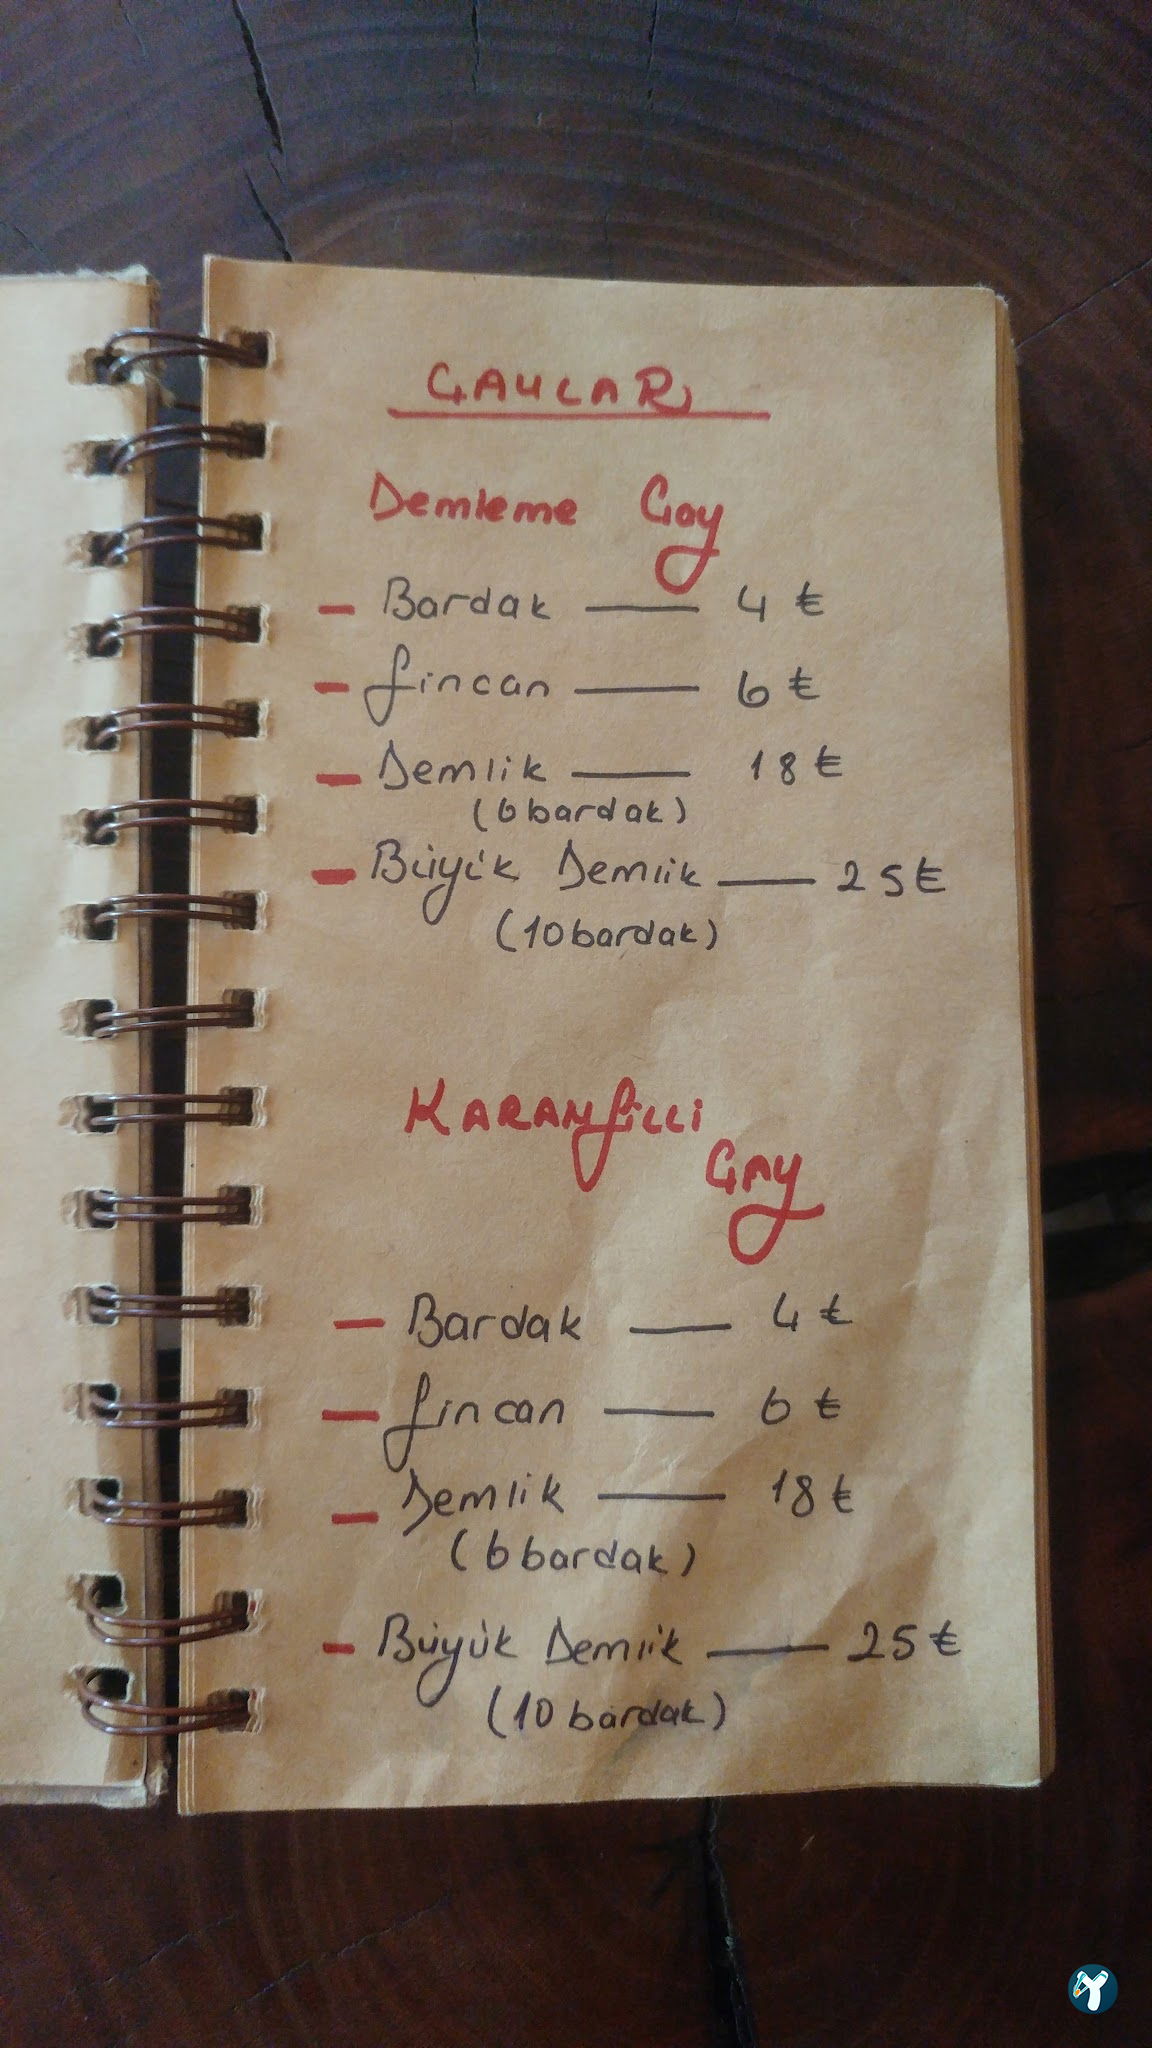 ÇAYLAR
Demleme Çay
- Bardak — 4 ₺
- fincan — 6 ₺
- Demlik — 18 ₺
(6 bardak)
- Büyük Demlik — 25 ₺
(10 bardak)
KARANfiLLi
ÇAY
- Bardak — 4 ₺
- fincan — 6 ₺
- Demlik — 18 ₺
(6 bardak)
- Büyük Demlik — 25 ₺
(10 bardak)